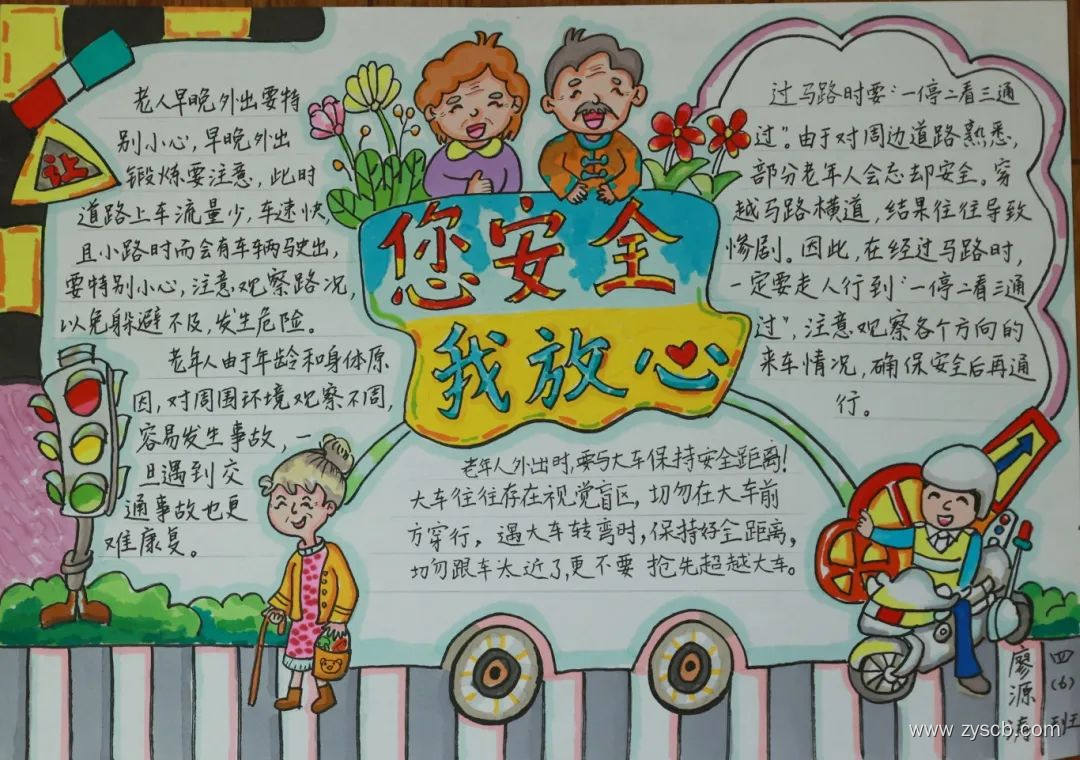 让
老人早晚外出要特
别小心,早晚外出
锻炼要注意,此时
道路上车流量少,车速快,
且小路时而会有车辆驶出,
要特别小心,注意观察路况,
以免躲避不及,发生危险。
老年人由于年龄和身体原
因,对周围环境观察不周,
容易发生事故,一
旦遇到交
通事故也更
难康复。
您安全
我放心
老年人外出时,要与大车保持安全距离!
大车往往存在视觉盲区,切勿在大车前
方穿行,遇大车转弯时,保持好全距离,
切勿跟车太近了,更不要抢先超越大车。
过马路时要“一停二看三通
过”。由于对周边道路熟悉,
部分老年人会忘却安全。穿
越马路横道,结果往往导致
惨剧。因此,在经过马路时,
一定要走人行到“一停二看三通
过”,注意观察各个方向的
来车情况,确保安全后再通
行。
四(6)班
廖源涛
www.zyscb.com